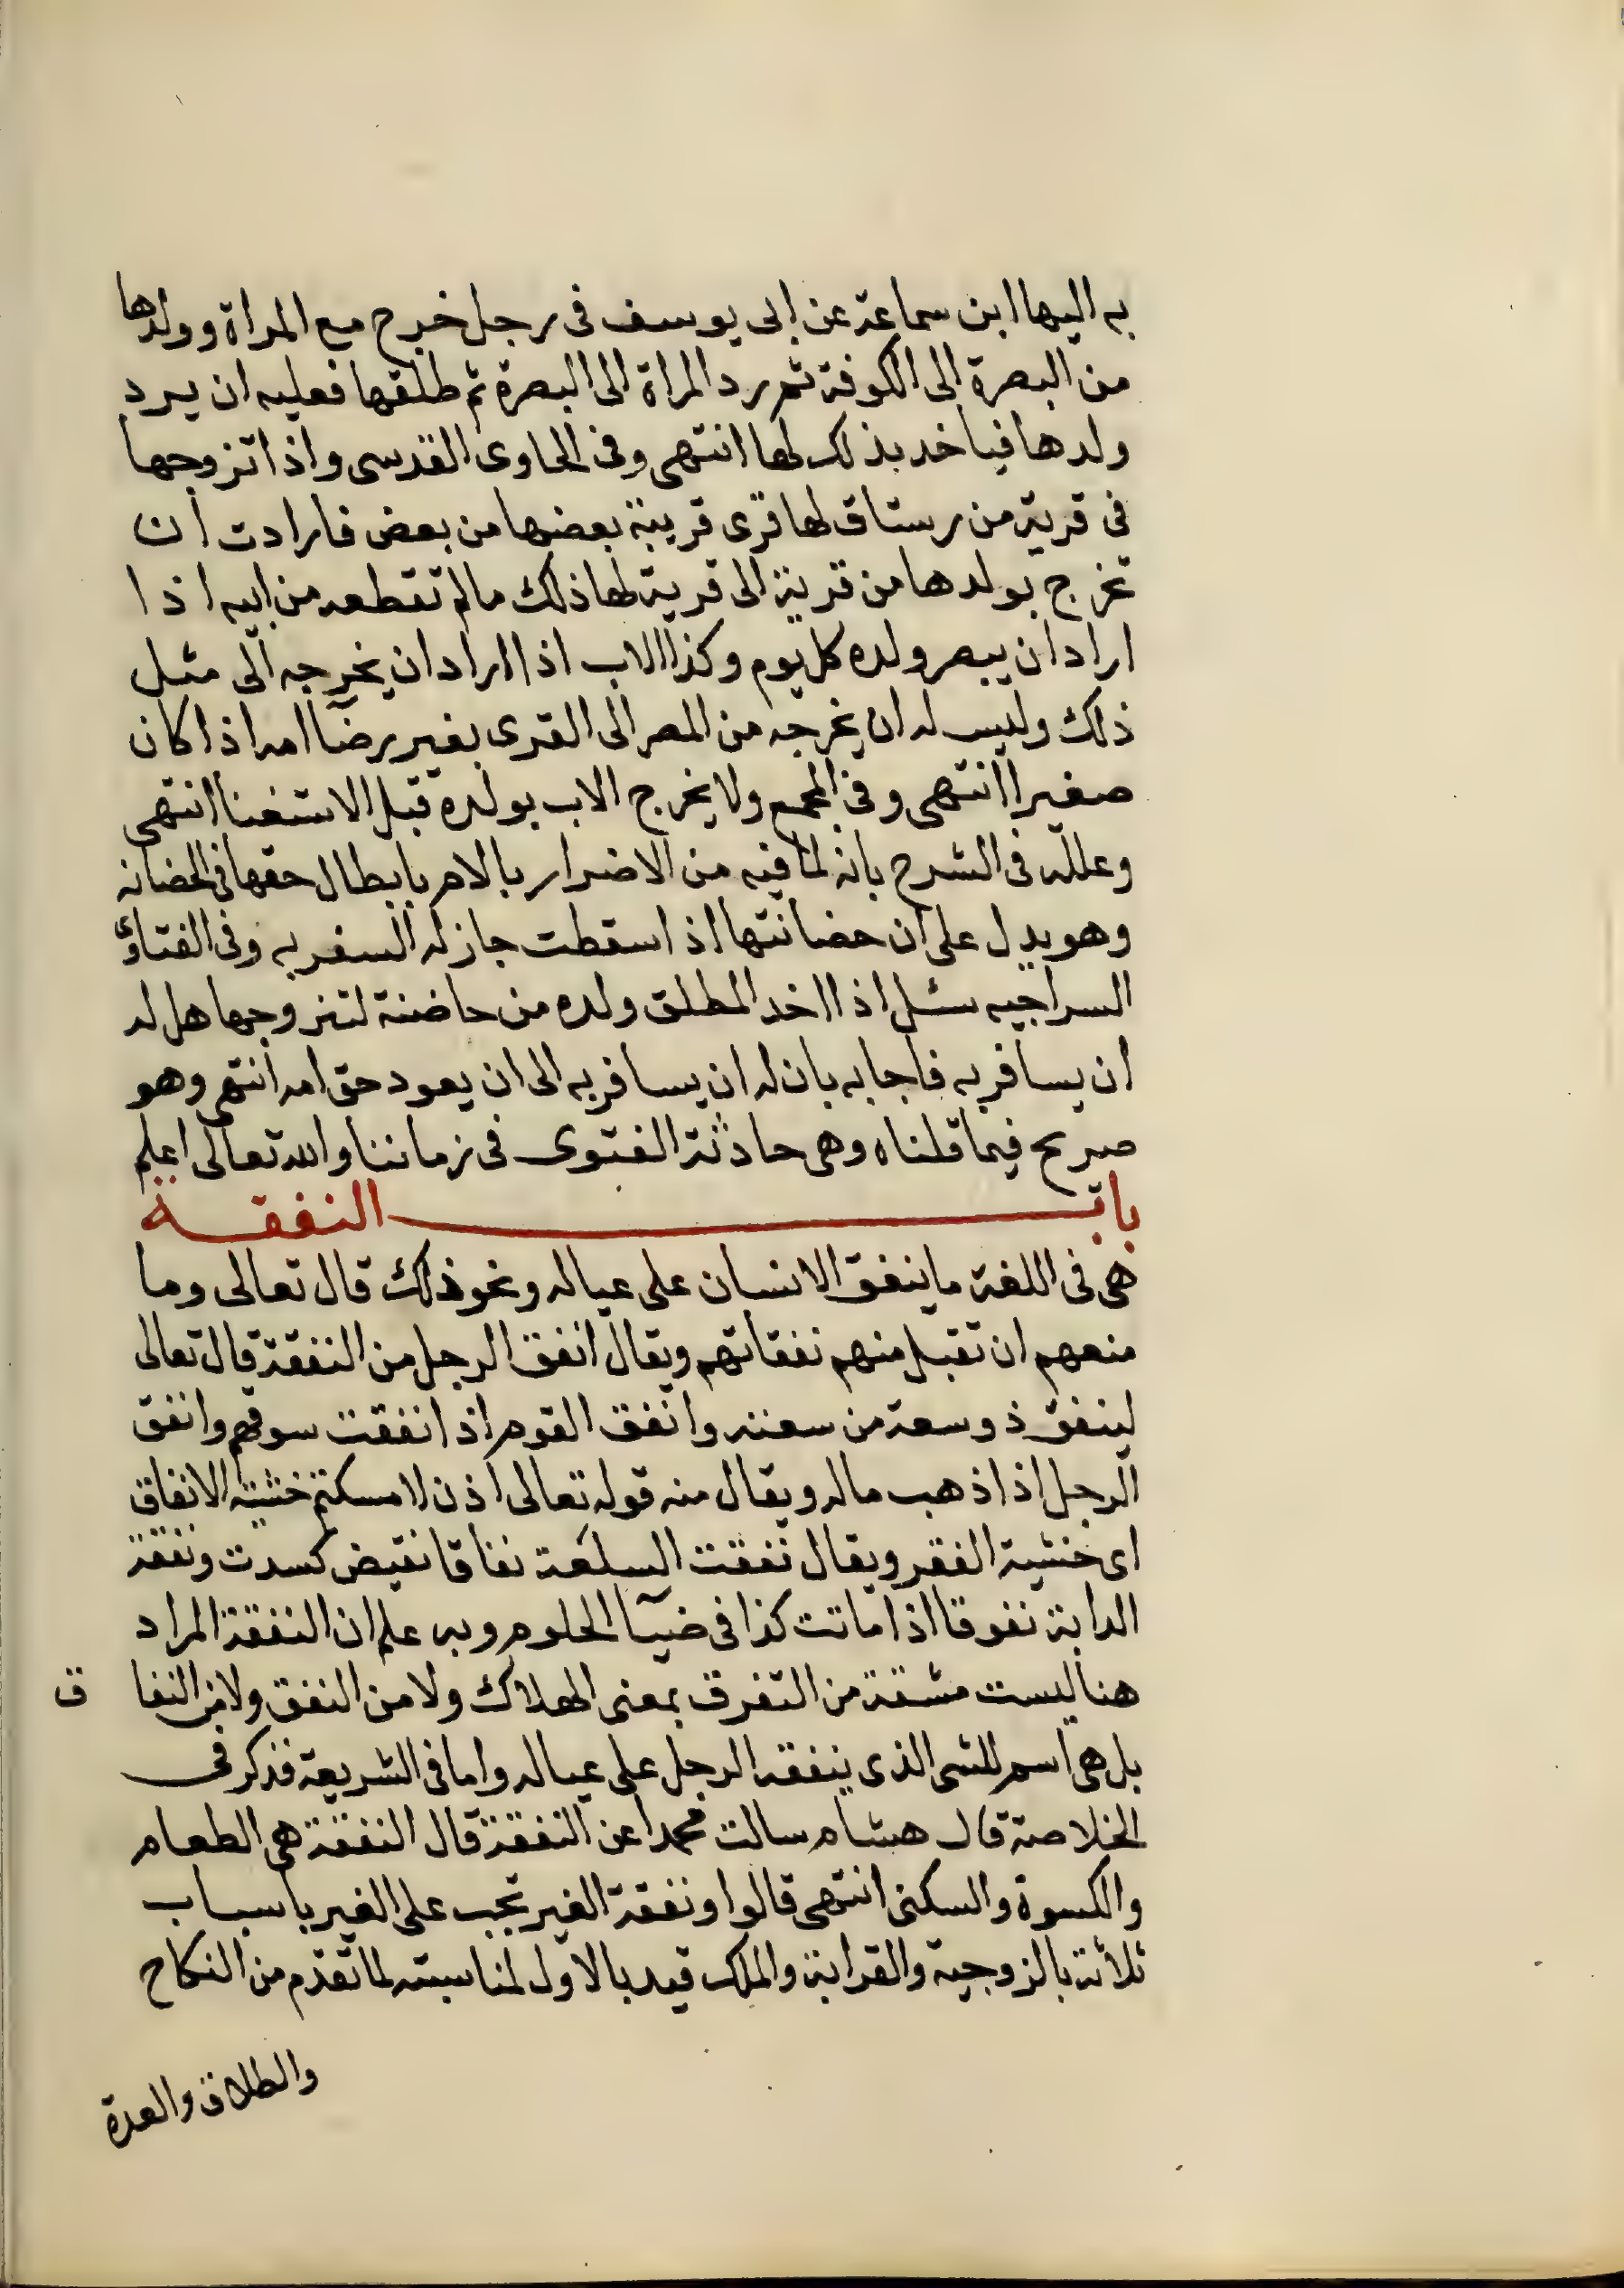 به اليها ابن سماعة عن ابى يوسف فى رجل خرج مع المراة وولدها
من البصرة الى الكوفة ثم رد المراة الى البصرة ثم طلقها فعليه ان يرد
ولدها فياخد بذلك لها انتهى وفى الحاوى القدسى واذا تزوجها
فى قرية من رستاق لها قرى قريبة بعضها من بعض فارادت ان
تخرج بولدها من قرية الى قرية لها ذلك مالم تقطعه من ابيه اذا
اراد ان يبصر ولده كل يوم وكذا الاب اذا اراد ان يخرجه الى مثل
ذلك وليس له ان يخرجه من المصر الى القرى بغير رضآ امه اذا كان
صغيرا انتهى وفى المجمع ولا يخرج الاب بولده قبل الاستغنا انتهى
وعلله فى الشرح بانه لما فيه من الاضرار بالام بابطال حقها فى الحضانه
وهو يدل على ان حضانتها اذا سقطت جاز له السفر به وفى الفتاوى
السراجيه سئل اذا اخد المطلق ولده من حاضنة لتزوجها هل له
ان يسافر به فاجابه بان له ان يسافر به الى ان يعود حق امه انتهى وهو
صريح فيما قلناه وهى حادثة الفتوى فى زماننا والله تعالى اعلم
باب النفقة
هى فى اللغة ما ينفق الانسان على عياله ونحو ذلك قال تعالى وما
منعهم ان تقبل منهم نفقاتهم ويقال انفق الرجل من النفقة قال تعالى
لينفق ذوسعة من سعته وانفق القوم اذا نفقت سوقهم وانفق
الرجل اذا ذهب ماله ويقال منه قوله تعالى اذن لامسكتم خشية الانفاق
اى خشية الفقر ويقال نفقت السلعة نفاقا نقيض كسدت ونفقة
الدابة نفوقا اذا ماتت كذا فى ضيآ الحلوم وبه علم ان النفقة المراد
هنا ليست مشقة من التفرق بمعنى الهلاك ولا من النفق ولا من النفا ق
بل هى اسم للشى الذى ينفقه الرجل على عياله واما فى الشريعة فذكر فى
الخلاصة قال هشام سالت محمدا عن النفقة قال النفقة هى الطعام
والكسوة والسكنى انتهى قالوا ونفقة الغير تجب على الغير باسباب
ثلاثة بالزوجية والقرابة والملك قيد بالاول لمناسبته لما تقدم من النكاح
والطلاق والعدة